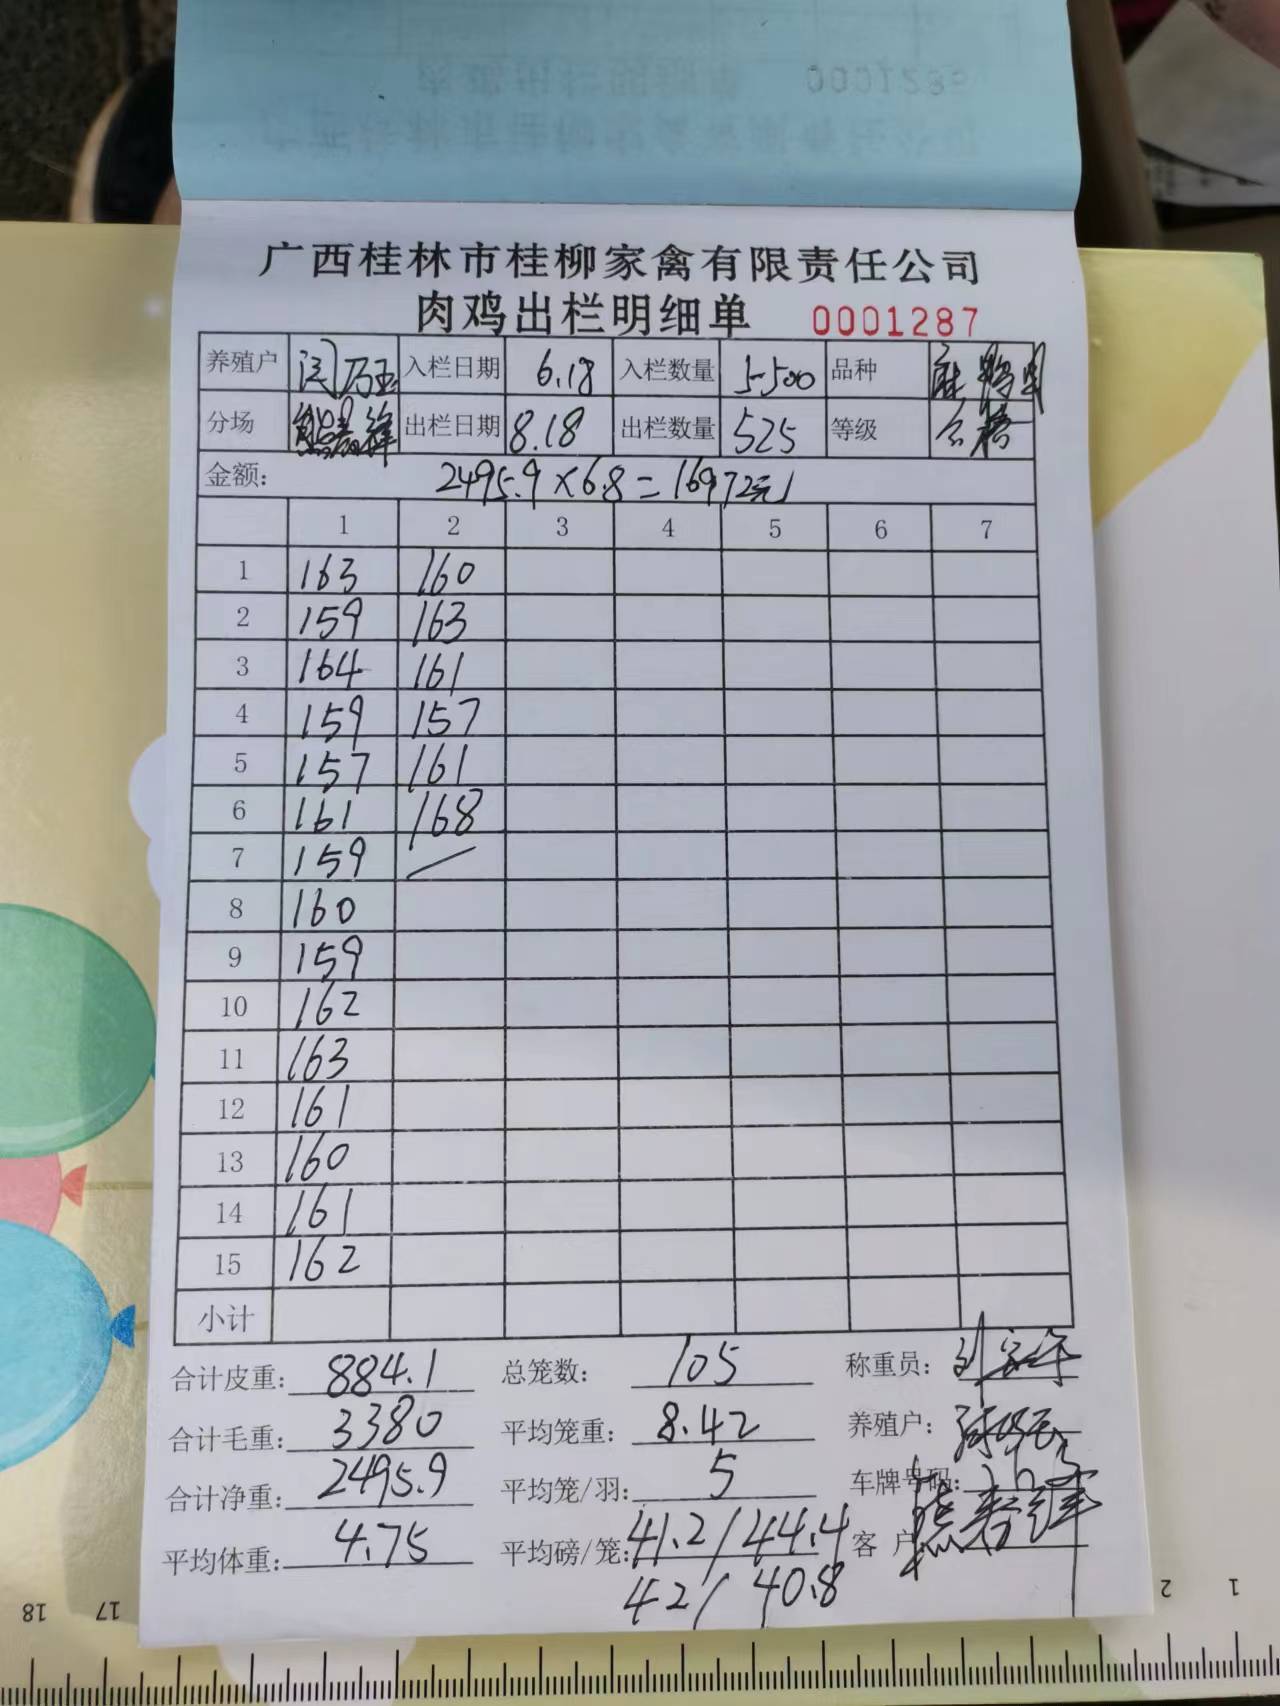 广西桂林市桂柳家禽有限责任公司
肉鸡出栏明细单 0001287
养殖户 万玉 入栏日期 6.18 入栏数量 5500 品种 麻鸡
分场 出栏日期 8.18 出栏数量 525 等级 合格
金额: 2495.9×6.8=16972元
1 2 3 4 5 6 7
1 163 160
2 159 163
3 164 161
4 159 157
5 157 161
6 161 168
7 159
8 160
9 159
10 162
11 163
12 161
13 160
14 161
15 162
小计
合计皮重: 884.1 总笼数: 105 称重员:
合计毛重: 3380 平均笼重: 8.42 养殖户:
合计净重: 2495.9 平均笼/羽: 5 车牌号码:
平均体重: 4.75 平均磅/笼: 41.2/44.4 客户
42/40.8
18 17 2 1